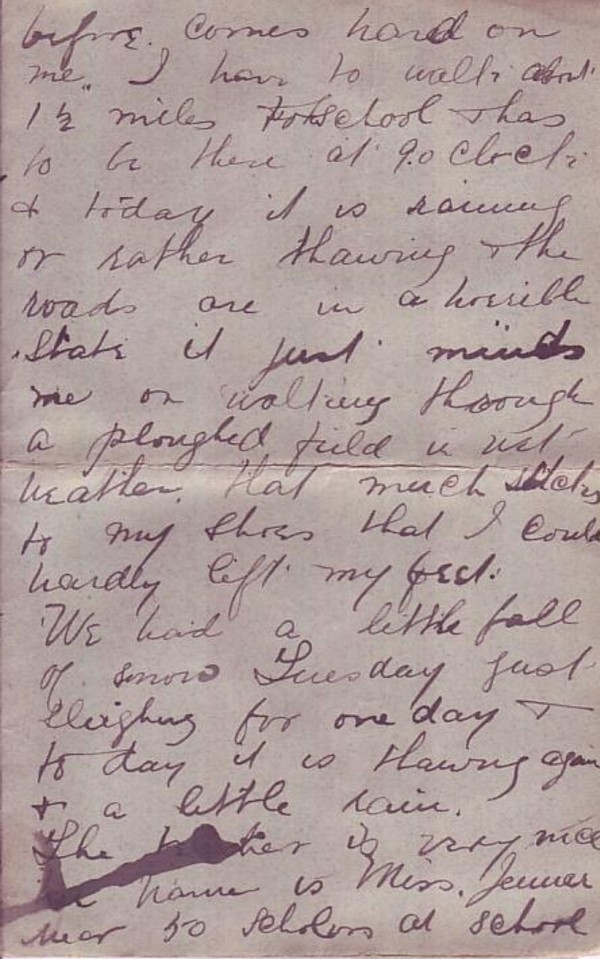 before. Comes hard on
me. I have to walk about
1½ miles to school & has
to be there at 9.0 clock
& today it is raining
or rather thawing & the
roads are in a horrible
state it just minds
me on walking through
a ploughed field in wet
weather. that much sticks
to my shoes that I could
hardly lift my feet.
We had a little fall
of snow Tuesday just
sleighing for one day &
to day it is thawing again
& a little rain.
The teacher is very nice
name is Miss. Jenner
near 50 scholors at school